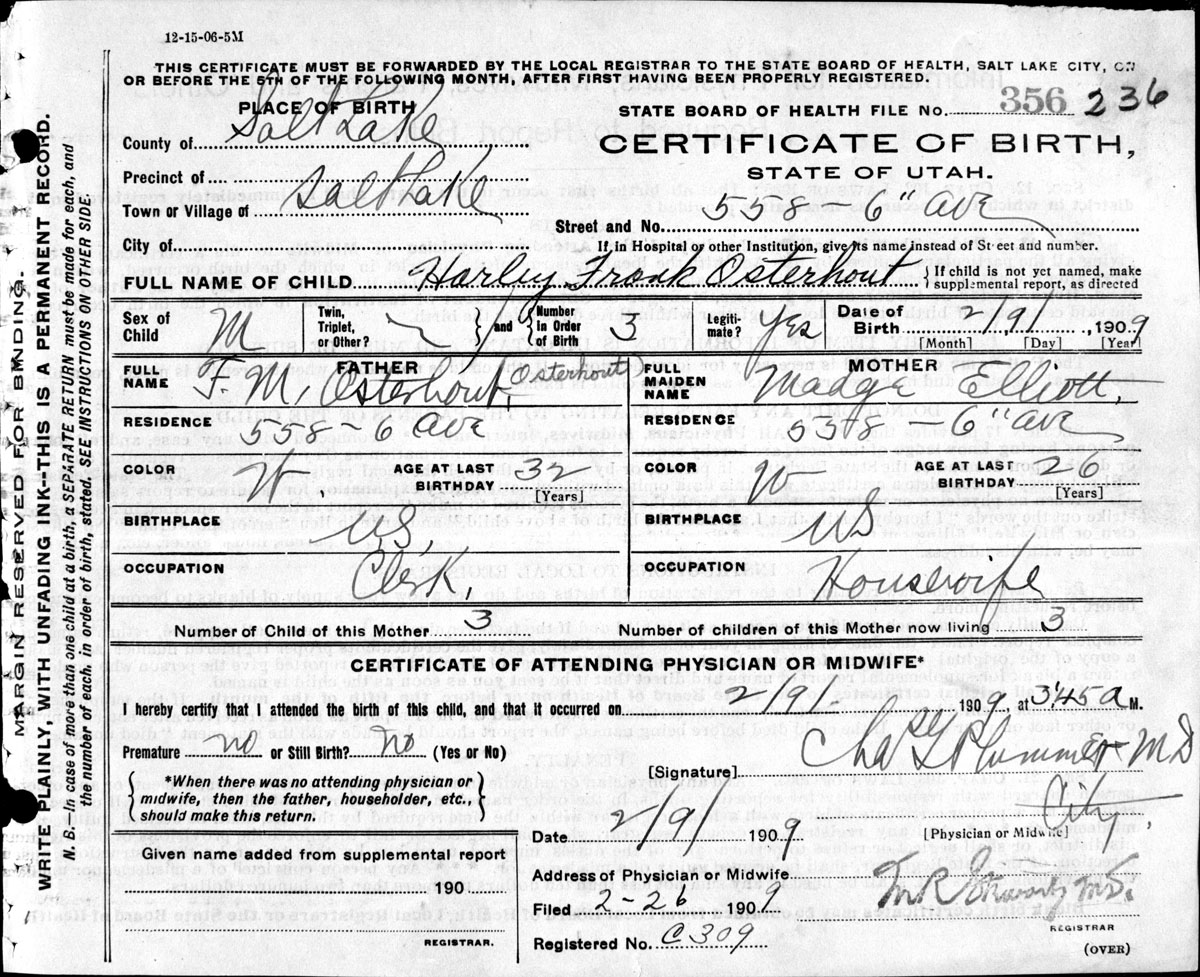 12-15-06-5M
THIS CERTIFICATE MUST BE FORWARDED BY THE LOCAL REGISTRAR TO THE STATE BOARD OF HEALTH, SALT LAKE CITY, ON
OR BEFORE THE 5TH OF THE FOLLOWING MONTH, AFTER FIRST HAVING BEEN PROPERLY REGISTERED.
PLACE OF BIRTH
STATE BOARD OF HEALTH FILE No. 356 236
County of Salt Lake
CERTIFICATE OF BIRTH,
STATE OF UTAH.
Precinct of
Town or Village of Salt Lake
Street and No. 558 - 6" Ave
City of
If in Hospital or other Institution, give its name instead of Street and number.
FULL NAME OF CHILD Harley Frank Osterhout } If child is not yet named, make supplemental report, as directed
Sex of Child M Twin, Triplet, or Other? } and { Number in Order of Birth 3 Legitimate? Yes Date of Birth 2/9/ , 1909
[Month] [Day] [Year]
FATHER
FULL NAME F. M. Osterhout, Osterhout
MOTHER
FULL MAIDEN NAME Madge Elliott,
RESIDENCE 558 - 6 Ave
RESIDENCE 558 - 6" Ave
COLOR W AGE AT LAST BIRTHDAY 32 [Years]
COLOR W AGE AT LAST BIRTHDAY 26 [Years]
BIRTHPLACE U.S,
BIRTHPLACE US
OCCUPATION Clerk,
OCCUPATION Housewife
Number of Child of this Mother 3 Number of children of this Mother now living 3
CERTIFICATE OF ATTENDING PHYSICIAN OR MIDWIFE*
I hereby certify that I attended the birth of this child, and that it occurred on 2/9/ 1909, at 3:45 a M.
Premature no or Still Birth? no (Yes or No)
[Signature] Chas L Plummer MD
{ *When there was no attending physician or
midwife, then the father, householder, etc.,
should make this return. }
City,
Date 2/9/ 1909
[Physician or Midwife]
Given name added from supplemental report
190
REGISTRAR.
Address of Physician or Midwife
Filed 2-26 1909
M.D.
REGISTRAR
Registered No. C309
(OVER)
MARGIN RESERVED FOR BINDING.
WRITE PLAINLY, WITH UNFADING INK—THIS IS A PERMANENT RECORD.
N. B. In case of more than one child at a birth, a SEPARATE RETURN must be made for each, and
the number of each, in order of birth, stated. SEE INSTRUCTIONS ON OTHER SIDE.